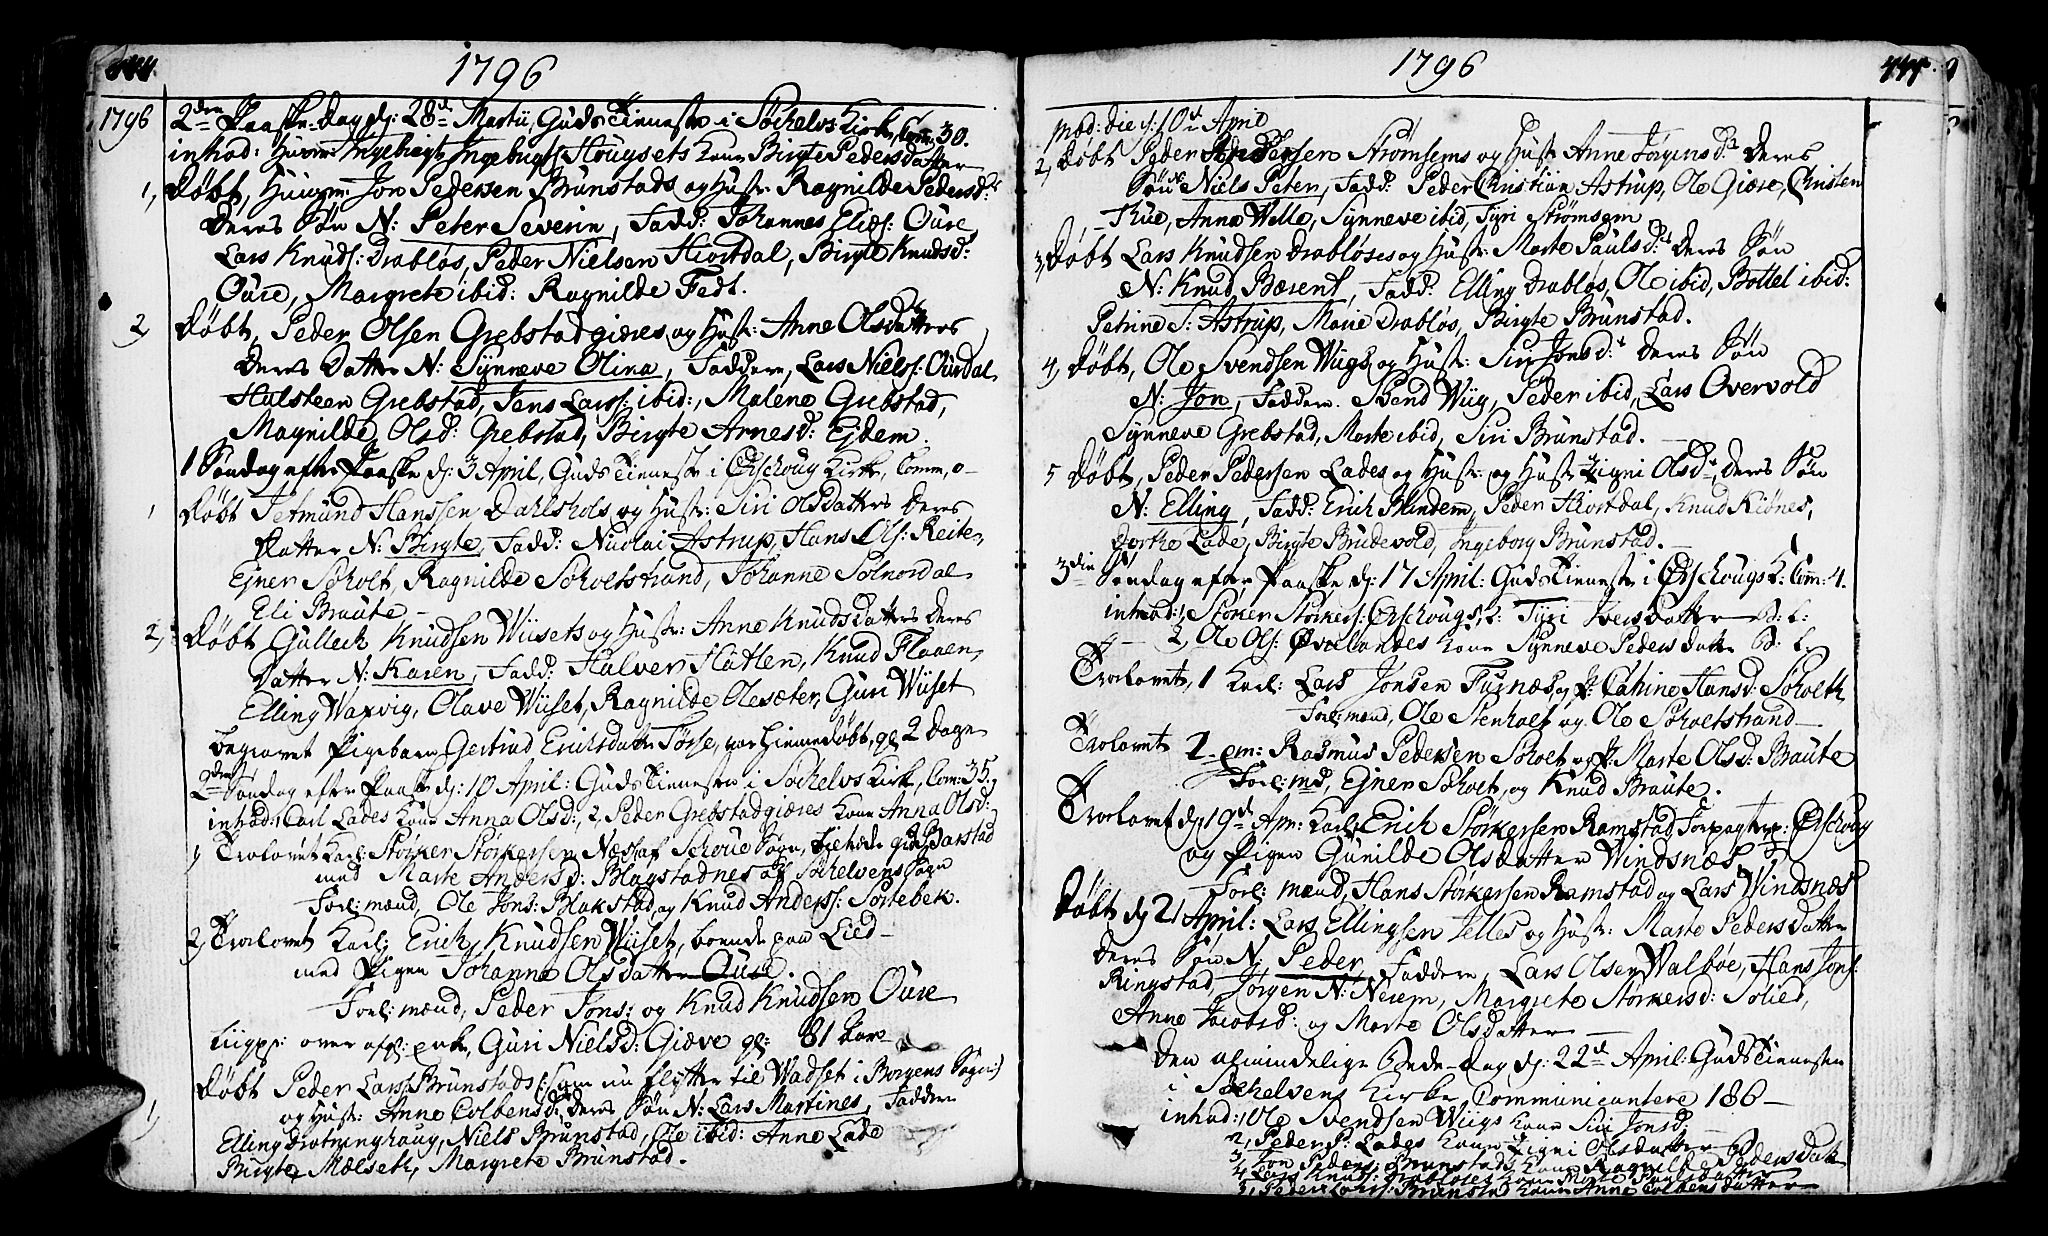 1796
1796 2den Paaske-Dag dj: 28d Martii, Guds Tienneste i Söchelvs Kirke, Com: 30.
inthod: Huusm: Ingebrigt Ingebrigts: Hougsets Kone Birgte Pedersdatter
1, Døbt, Huusm: Jon Pedersen Brunstads og Hustr: Ragnilde Pedersd:
Deres Søn N: Peter Severin, Fadd: Johannes Elies: Oure,
Lars Knuds: Drabløs, Peder Nielsen Hiortdal, Birgte Knudsd:
Oure, Margrete ibid: Ragnilde Fedt.
2, Døbt, Peder Olsen Grebstadgiæres og Hustr: Anne Olsdatters
Deres Datter N: Synneve Olina, Faddere, Lars Niels: Ourdal,
Halsteen Grebstad, Jens Lars: ibid:, Malene Grebstad,
Magnilde Olsd: Grebstad, Birgte Arnesd: Ejdem.
1 Søndag efter Paaske dj: 3 April, Guds Tienneste i Ørschoug Kirke, Comm, 0-
1 Døbt Jetmund Hanssen Dahlshols og Hustr: Siri Olsdatters Deres
Datter N: Birgte, Fadd: Nicolai Astrup, Hans Ols: Reite,
Ejner Soholt, Ragnilde Soholtstrand, Johanne Solnordal
Eli Braute –
2, Døbt Gulleck Knudsen Wiisets og Hustr: Anne Knudsdatters Deres
Datter N: Karen, Fadd: Halver Hatlen, Knud Flaaen,
Elling Waxvig, Olave Wiiset, Ragnilde Olesæter, Guri Wiiset
begravet Pigebarn Gertrud Erichsdatter Tørse, var hiemmedøbt, gl: 2 Dage
2den Søndag efter Paaske dj: 10 April: Guds Tiennesten i Söchelvs Kirke, Com: 35,
inthod: 1, Carl Lades Kone Anna Olsd:, 2, Peder Grebstadgiæres Kone Anna Olsd:
1 Trolovet Karl: Størker Størkersen Næs af Schoue Sogn,
med Marte Andersd: Blagstadnes af Söchelvens Sogn
Forl: mænd, Ole Jons: Blakstad og Knud Anders: Sortebek.
2, Trolovet Karl: Erich Knudsen Wiiset, boende paa Lied –
med Pigen Johanne Olsdatter Oure.
Forl: mænd, Peder Jons: og Knud Knudsen Oure
Liigpr: over afg: enke, Guri Nielsd: Giæve gl: 81 Aar
1, Døbt Peder Lars: Brunstads (: som nu flytter til Wadset i Borgens Sogn :)
og Hustr: Anne Colbensd: Deres Søn N: Lars Martines, Faddere
Elling Drotninghaug, Niels Brunstad, Ole ibid: Anne Lade
Birgte Mælseth, Margrete Brunstad.
1796
Mod: die d: 10d April
2, Døbt Peder Andersen Strømsems og Hustr Anne Jørgensd: Deres
Søn N: Niels Peter, Fadd: Peder Christian Astrup, Ole Giære, Christen
Thue, Anne Welle, Synneve ibid, Tyri Strømsem
3, Døbt Lars Knudsen Drabløses og Hustr: Marte Paulsd: Deres Søn
N: Knud Bærent, Fadd: Elling Drabløs, Ole ibid, Bottel ibid:
Petrine S: Astrup, Marie Drabløs, Birgte Brunstad.
4, Døbt, Ole Svendsen Wiigs og Hustr: Siri Jonsd: Deres Søn
N: Jon, Faddere. Svend Wiig, Peder ibid, Lars Overvold
Synneve Grebstad, Marte ibid, Siri Brunstad. –
5 Døbt, Peder Pedersen Lades og Hustr: og Hustr Zigni Olsd:, Deres Søn
N: Elling, Fadd: Erich Mindem, Peder Hiortdal, Knud Kiønes,
Dorthe Lade, Birgte Brudevold, Ingeborg Brunstad. –
3die Søndag efter Paaske dj: 17 April: Guds Tienneste i Ørschougs K: Com: 4.
inthod: 1, Størker Størkers: Ørschougs, K: Tyri Iversdatter
2, Ole Ols: Øvrelandes Kone Synneve Pedersdatter
Trolovet, 1 Karl: Lars Jonsen Furnæs, og P: Cahrine Hansd: Soholth
Forl: mænd, Ole Stenholt og Ole Soholtstrand –
Trolovet 2 em: Rasmus Pedersen Soholt og P: Marte Olsd: Braute
Forl: md, Ejner Soholt, og Knud Braute.
Trolovet dj 19d Apr: Karl: Erich Størkersen Ramstad Forpagter p: Ørschoug
og Pigen Gunilde Olsdatter Windsnæs
Forl: mænd, Hans Størkersen Ramstad og Lars Windsnæs
Døbt dj 21 April: Lars Ellingsen Telles og Hustr: Marte Pedersdatter
Deres Søn N: Peder, Faddere, Lars Olsen Walbøe, Hans Jons:
Ringstad, Jørgen N: Nerem, Margrete Størkersd: Solied,
Anne Jacobsd: og Marte Olsdatter –
Den almindelige Bede-Dag dj: 22d April: Guds Tiennesten
i Søchelvens Kirke Communicantere 186 –
inthod: 1, Ole Svendsen Wiigs Kone Siri Jonsd:
2, Peder P: Lades Kone Zigni Olsdatter
3, Jon Peders: Brunstads Kone Ragnilde Pedersdatt
4, Lars Knuds: Drabløses Kone Marte Paulsdatter
5, Peder Lars: Brunstad Kone Anne Colbensdatter